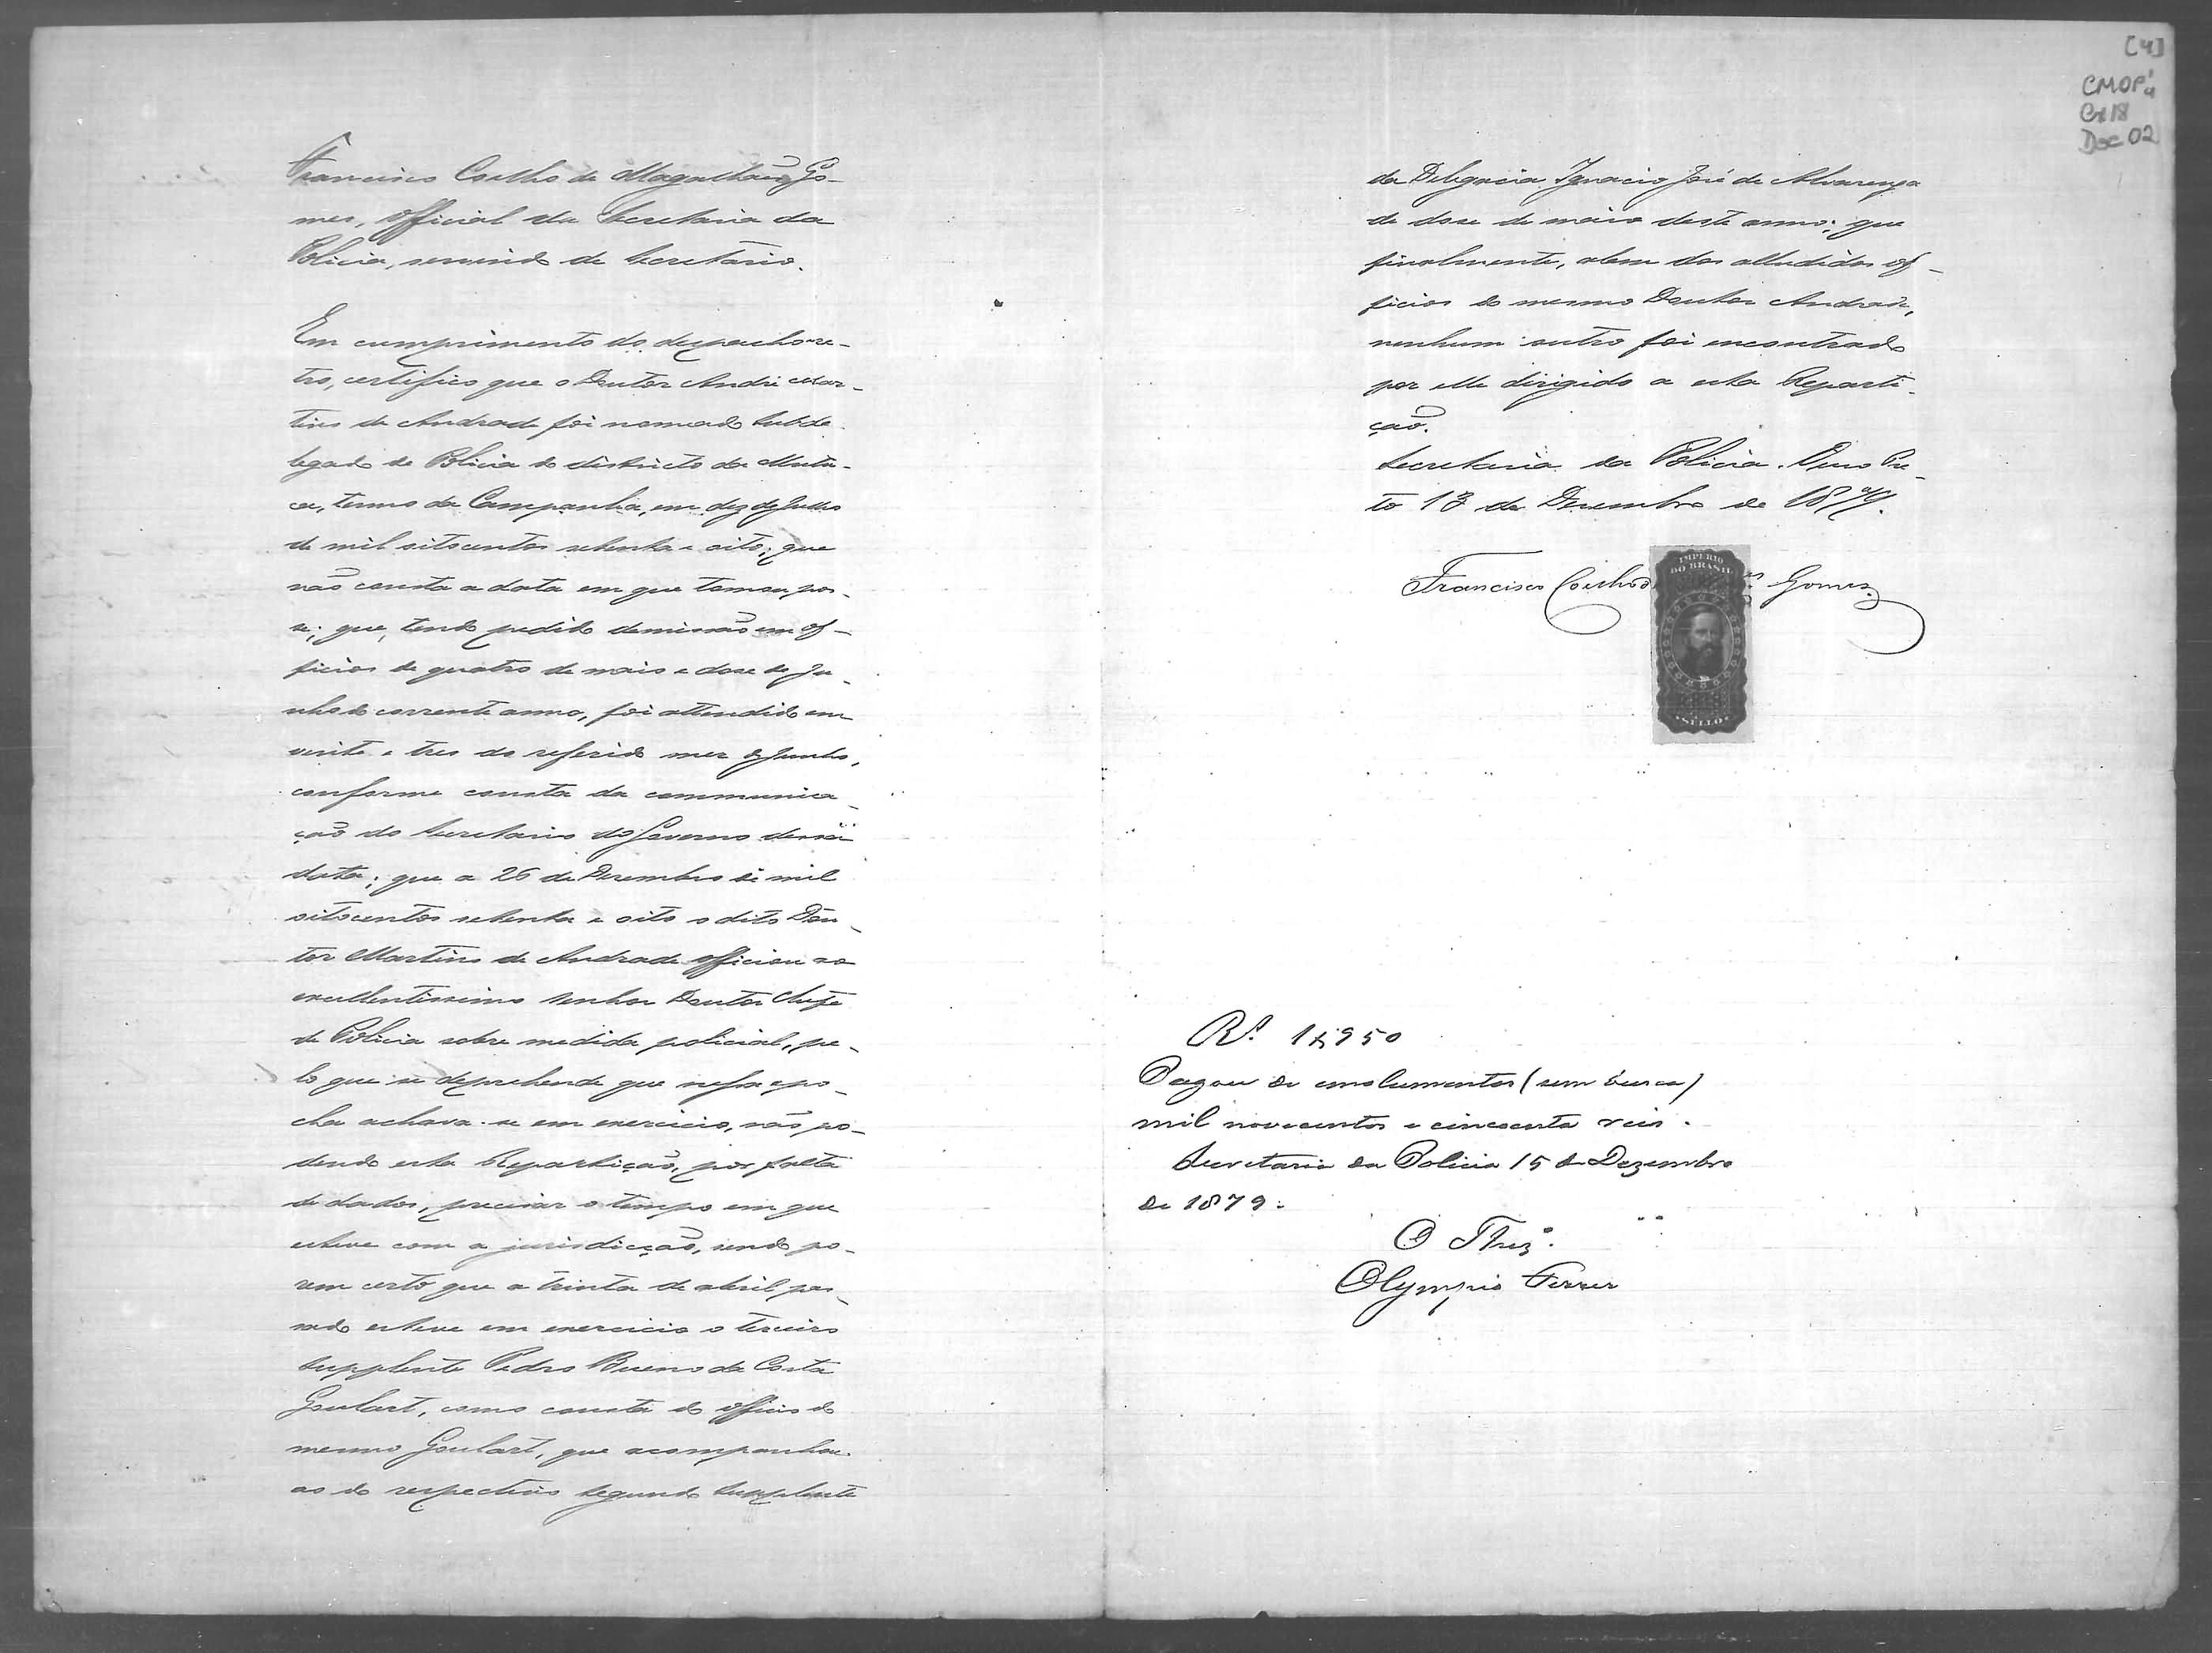 Francisco Coelho de Magalhães Go-
mes, official da Secretaria da
Policia, servindo de Secretario.
Em cumprimento do despacho re-
tro, certifico que o Doutor André Mar-
tins de Andrade foi nomeado Subde-
legado de Policia do districto da Mutu-
ca, termo da Campanha, em dez de Julho
de mil oitocentos setenta e oito; que
não consta a data em que tomou pos-
se; que, tendo pedido demissão em of-
ficios de quatro de maio e doze de Ju-
nho do corrente anno, foi attendido em
vinte e tres do referido mez de Junho,
conforme consta da communica-
ção do Secretario do Governo dessa
data; que a 26 de Dezembro de mil
oitocentos setenta e oito o dito Dou-
tor Martins de Andrade officiou ao
excellentissimo Senhor Doutor Chefe
de Policia sobre medida policial, pe-
lo que se deprehende que nessa epo-
cha achava-se em exercicio, não po-
dendo esta Repartição, por falta
de dados, precisar o tempo em que
esteve com a jurisdicção, sendo po-
rem certo que a trinta de abril pas-
sado esteve em exercicio o terceiro
supplente Pedro Bueno da Costa
Goulart, como consta do officio do
mesmo Goulart, que acompanhou
ao do respectivo segundo supplente
[4]
CMOP
Cx 18
Doc 02
da Delegacia Ignacio José de Alvarenga
de dose de maio deste anno; que
finalmente, alem dos alludidos of-
ficios do mesmo Doutor Andrade,
nenhum outro foi encontrado
por elle dirigido a esta Reparti-
ção.
Secretaria da Policia. Ouro Pre-
to 13 de Dezembro de 1879.
Francisco Coelho d Gomes
IMPERIO
DO BRASIL
SELLO
Rs. 1$950
Pagou de emolumentos (sem busca)
mil novecentos e cincoenta reis.
Secretaria da Policia 15 de Dezembro
de 1879.
O Thezo.
Olympio Ferrer